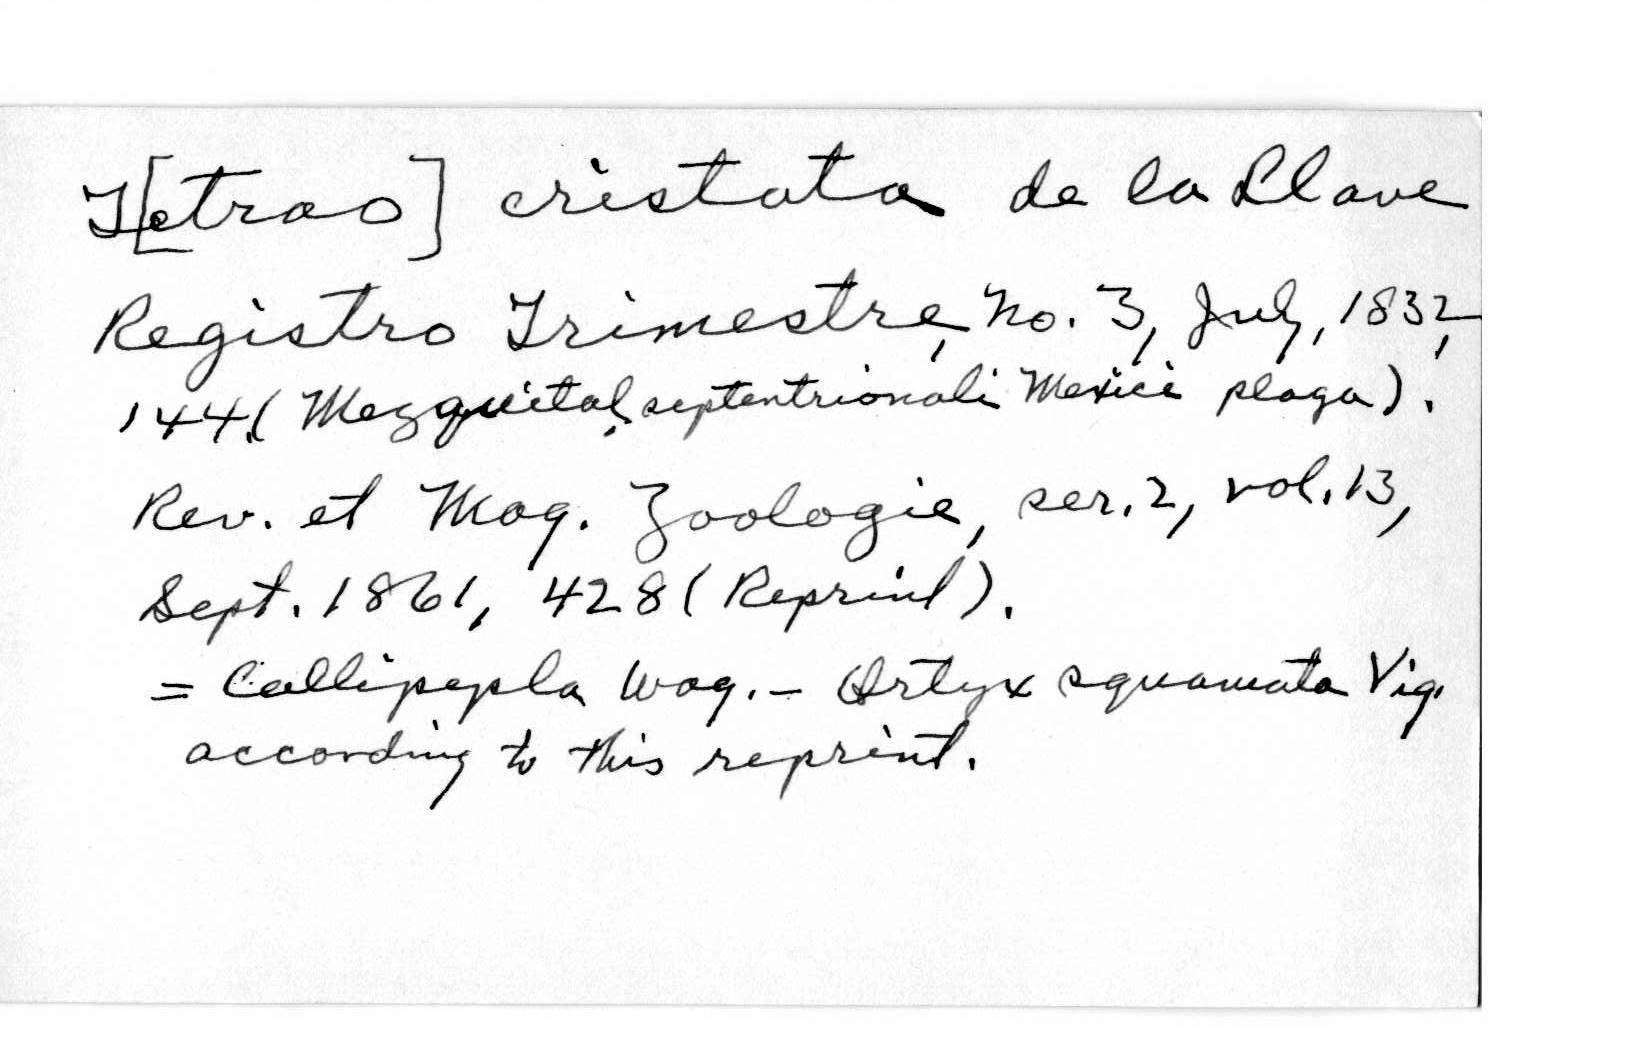 T[etrao] cristata de la Llave
Registro Trimestre, No. 3, July, 1832,
144. (Mezquital, septentrionali Mexici plaga).
Rev. et Mag. Zoologie, ser. 2, vol. 13,
Sept. 1861, 428 (Reprint).
= Callipepla Wag. - Ortyx squamata Vig.
according to this reprint.